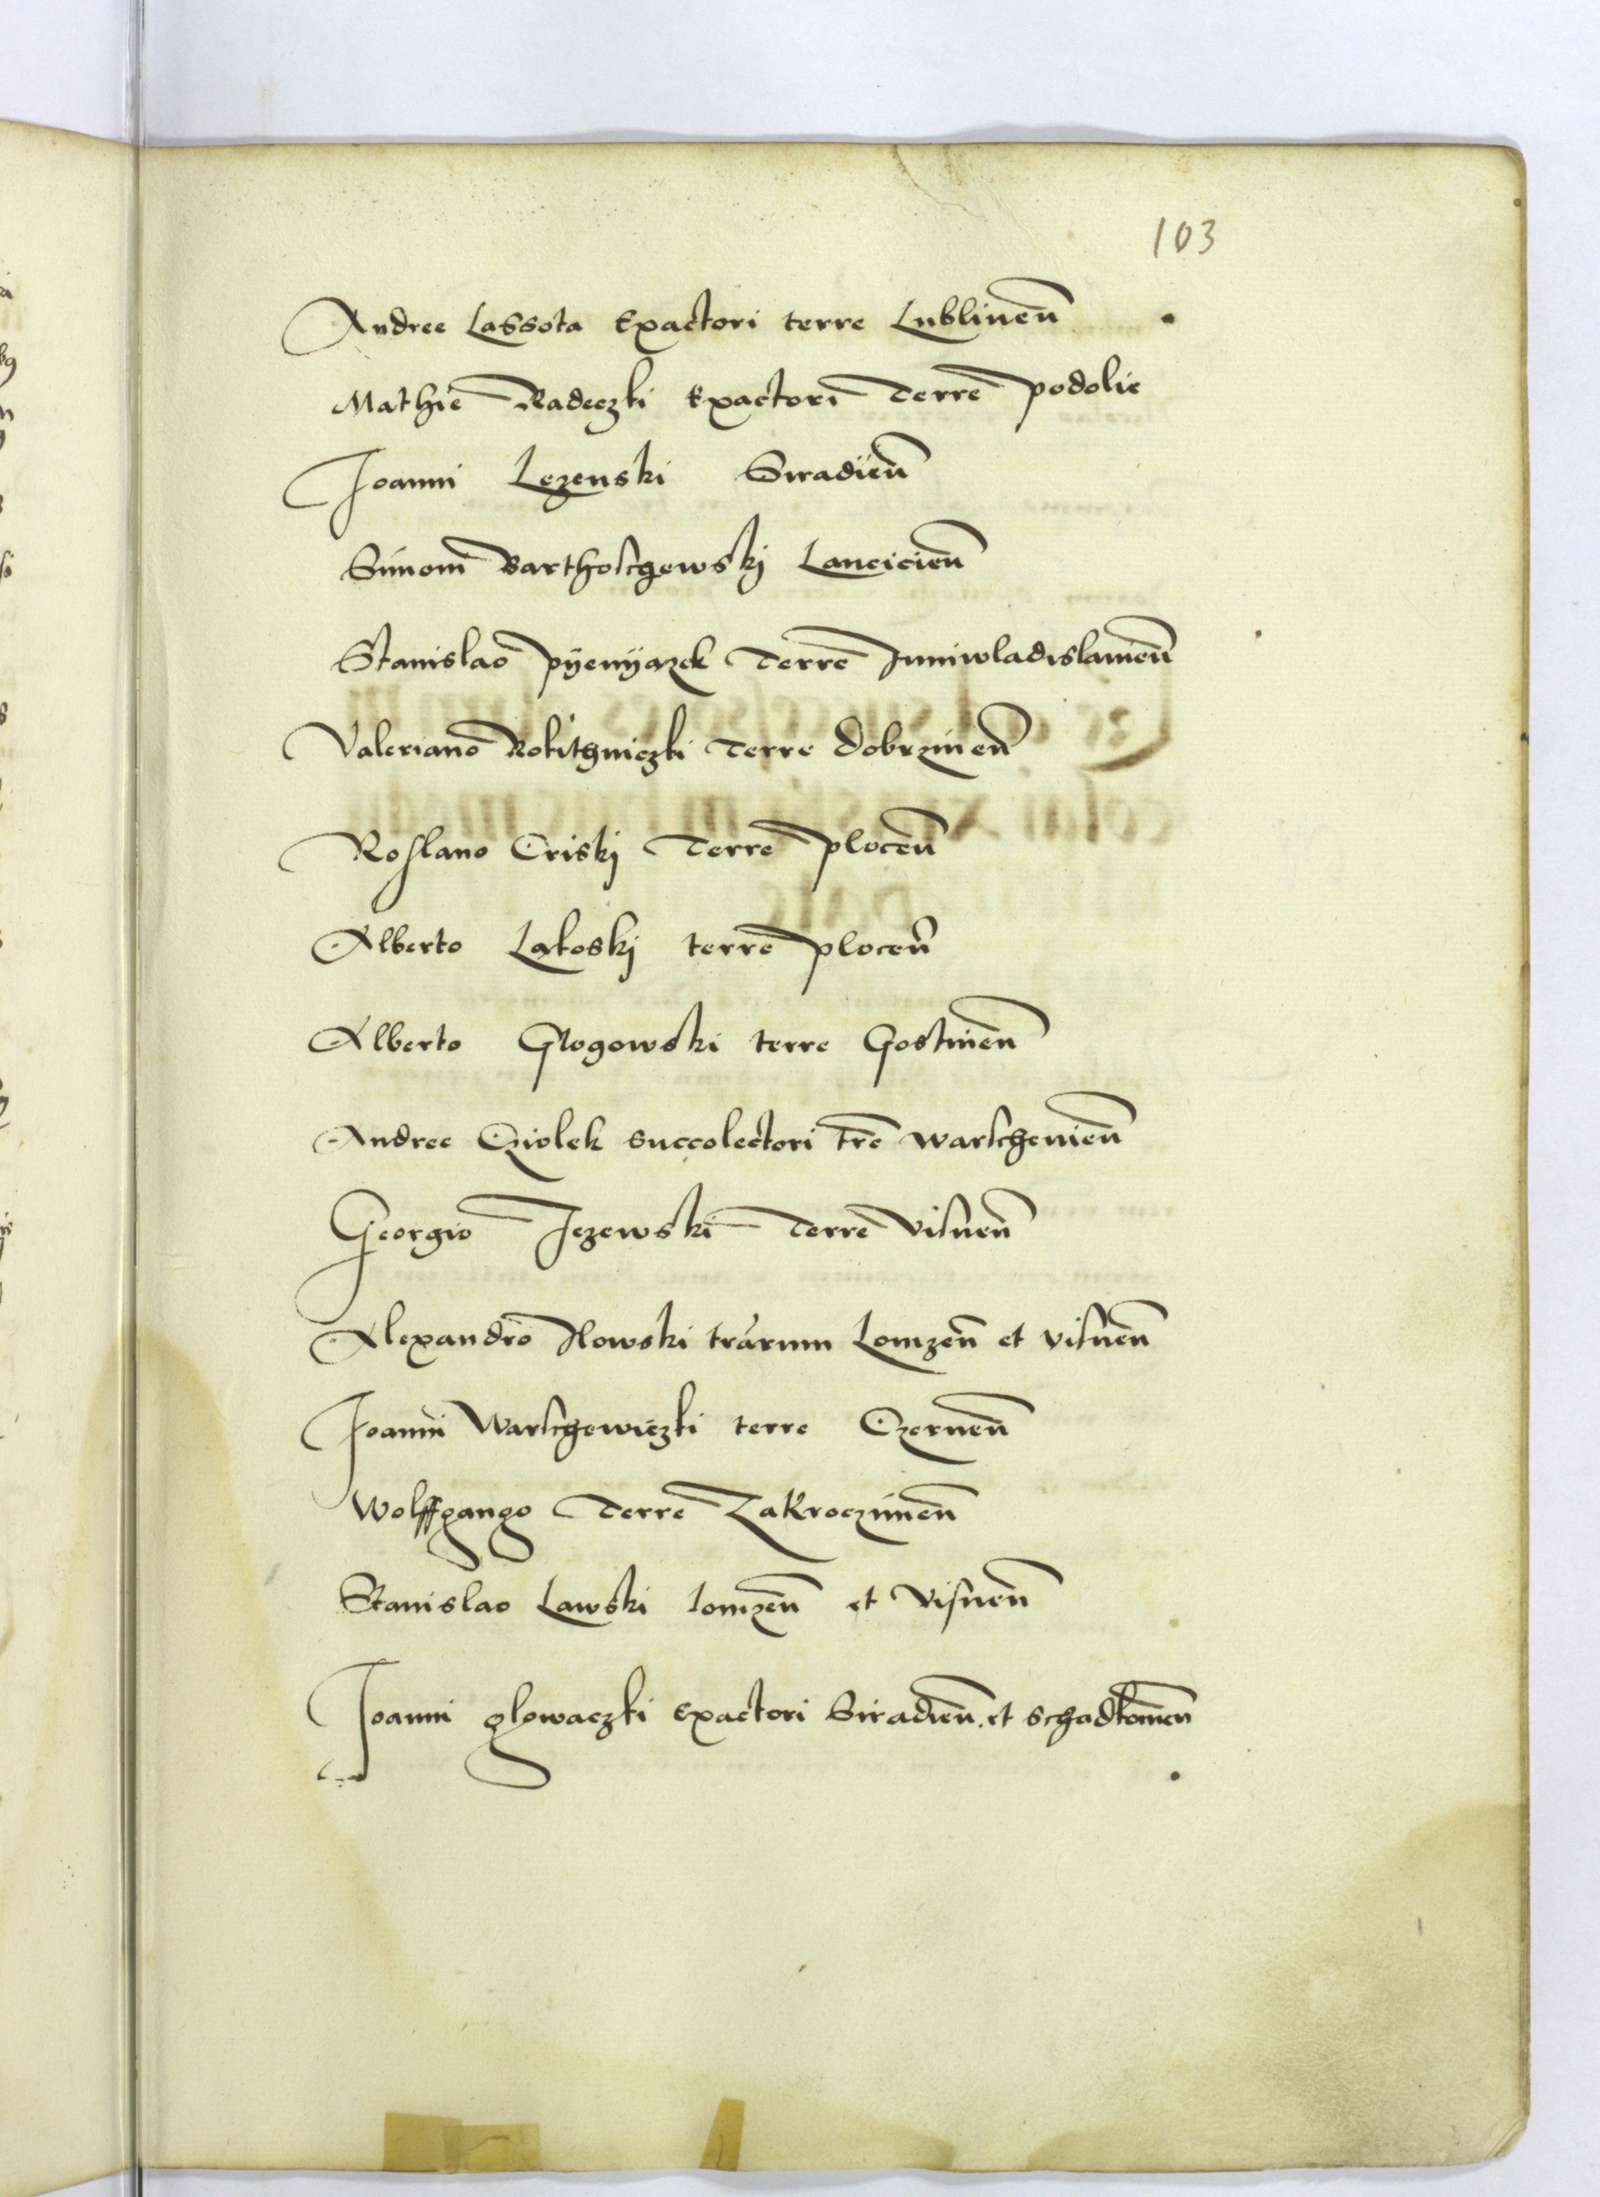 103
Andree Lassota Exactori terre Lublinen̄
Mathie Radeczki Exactori Terre podolie
Joanni Lezenski Siradien̄
Simoni Barthoscgowskj Lancicien̄
Stanislao pÿenÿazek Terre Juniwladislamen̄
Valeriano Rokithniczki Terre dobrzinen̄
Roslano Criskj Terre plocen̄
Alberto Lakoskj terre plocen̄
Alberto Glogowski terre Gostinen̄
Andree Cziolek succolectori tre̅ warschenien̄
Georgio Jezewski Terre visnen̄
Alexandro Ilowski trarum Lomzen̄ et visnen̄
Joanni Warschewiczki terre Czernen̄
Wolffgango Terre Zakroczimen̄
Stanislao Lawski lomzen̄ et visnen̄
Joanni glowaczki Exactori Siradien̄. et schadkomen̄